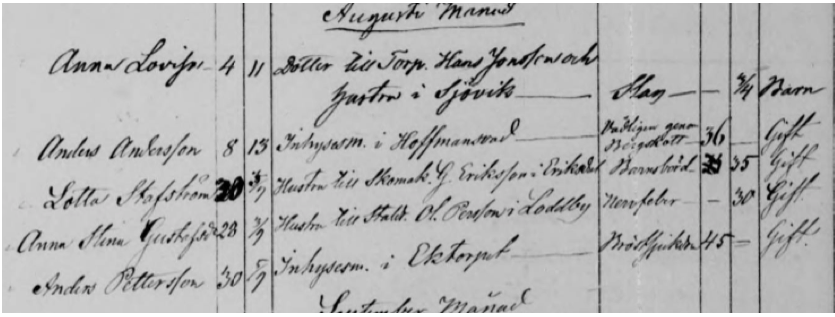 Augusti Månad
Anna Lovisa 4 11 Dotter till Torp. Hans Jonsson och
hustru i Sjövik — Slag — 3/4 Barn
Anders Andersson 8 13 Inhysesm. i Hoffmansvad — genom Bergskott 36 — Gift
Lotta Stafström 30 Hustru till Skomak. G. Eriksson i Barnsbörd 35 Gift
Anna Stina Gustafsd. 28 3/9 Hustru till Statd. Ol. Persson i Loddby Nervfeber — 30 Gift
Anders Pettersson 30 5/9 Inhysesm. i Ektorpet — Bröstsjukdom 45 = Gift
September Månad